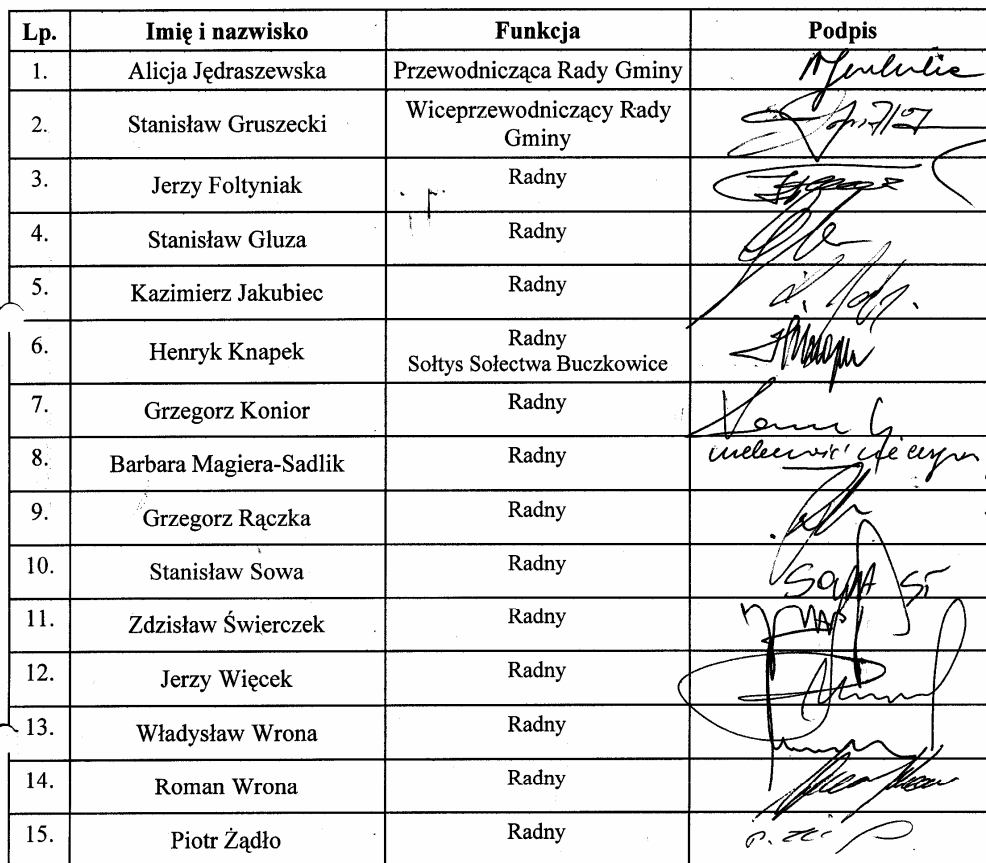 Lp. Imię i nazwisko Funkcja Podpis
1. Alicja Jędraszewska Przewodnicząca Rady Gminy
2. Stanisław Gruszecki Wiceprzewodniczący Rady
Gminy
3. Jerzy Foltyniak Radny
4. Stanisław Gluza Radny
5. Kazimierz Jakubiec Radny
6. Henryk Knapek Radny
Sołtys Sołectwa Buczkowice
7. Grzegorz Konior Radny
8. Barbara Magiera-Sadlik Radny
9. Grzegorz Rączka Radny
10. Stanisław Sowa Radny SOWA ST
11. Zdzisław Świerczek Radny
12. Jerzy Więcek Radny
13. Władysław Wrona Radny
14. Roman Wrona Radny
15. Piotr Żądło Radny